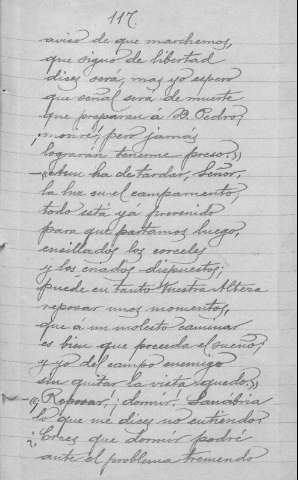 117.
aviso de que marchemos,
que signo de libertad
dices será, mas yo espero
que señal será de muerte
que preparen á D. Pedro;
moriré, pero jamás
lograrán tenerme preso.»
ha de tardar, Señor,
la luz en el campamento,
todo está yá prevenido
para que partamos luego,
ensillados los corceles
y los criados dispuestos;
puede en tanto Vuestra Alteza
reposar unos momentos,
que a un molesto caminar
es bien que preceda el sueño,
y yo del campo enemigo
sin quitar la vista quedo.»
«¡Reposar! ¡dormir! Sanabria
lo que me dices no entiendo.
¿Crees que dormir podré
ante el problema tremendo